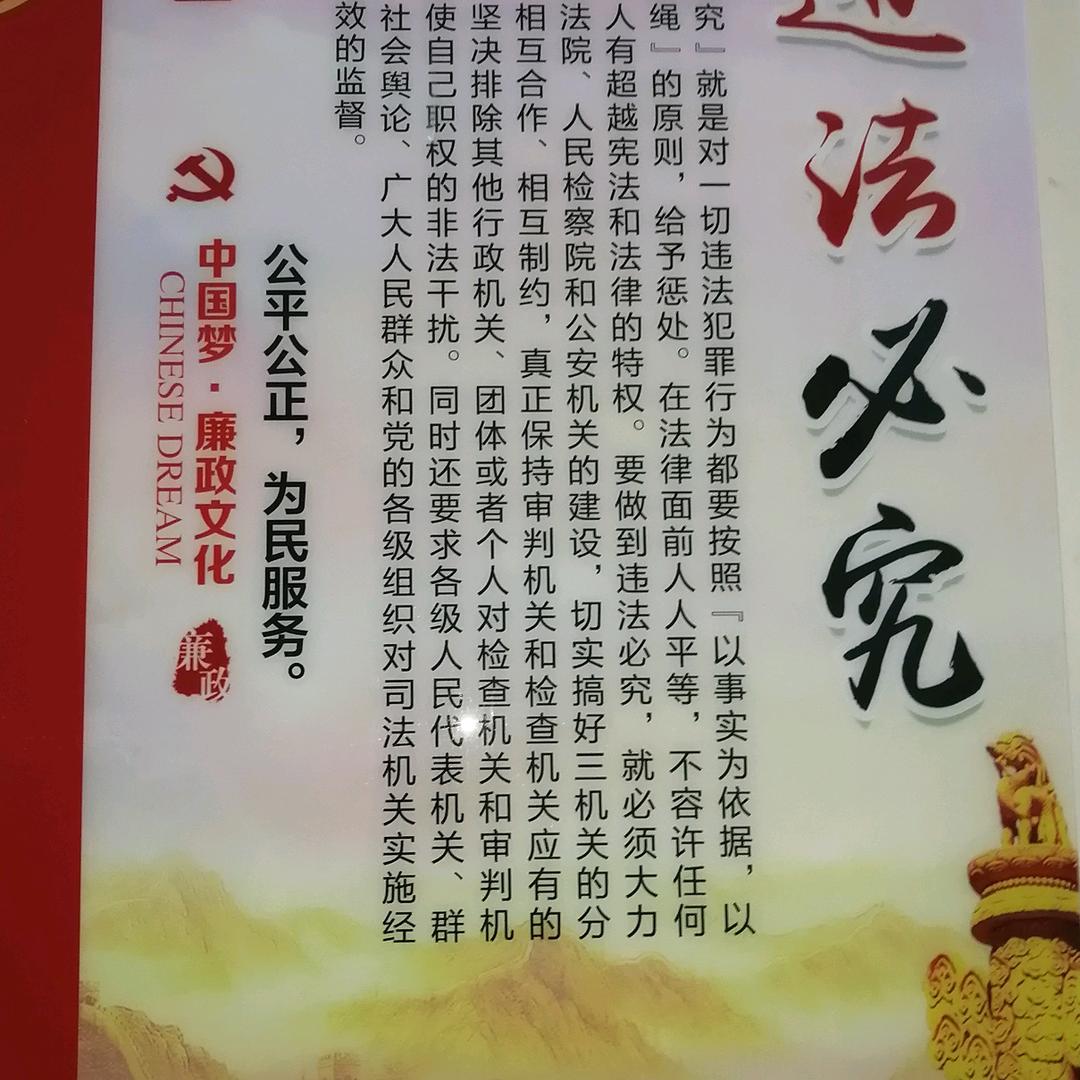 违法必究
究』就是对一切违法犯罪行为都要按照『以事实为依据，以
绳』的原则，给予惩处。在法律面前人人平等，不容许任何
人有超越宪法和法律的特权。要做到违法必究，就必须大力
法院、人民检察院和公安机关的建设，切实搞好三机关的分
相互合作、相互制约，真正保持审判机关和检查机关应有的
坚决排除其他行政机关、团体或者个人对检查机关和审判机
使自己职权的非法干扰。同时还要求各级人民代表机关、群
社会舆论、广大人民群众和党的各级组织对司法机关实施经
效的监督。
公平公正，为民服务。
中国梦·廉政文化
CHINESE DREAM
廉政